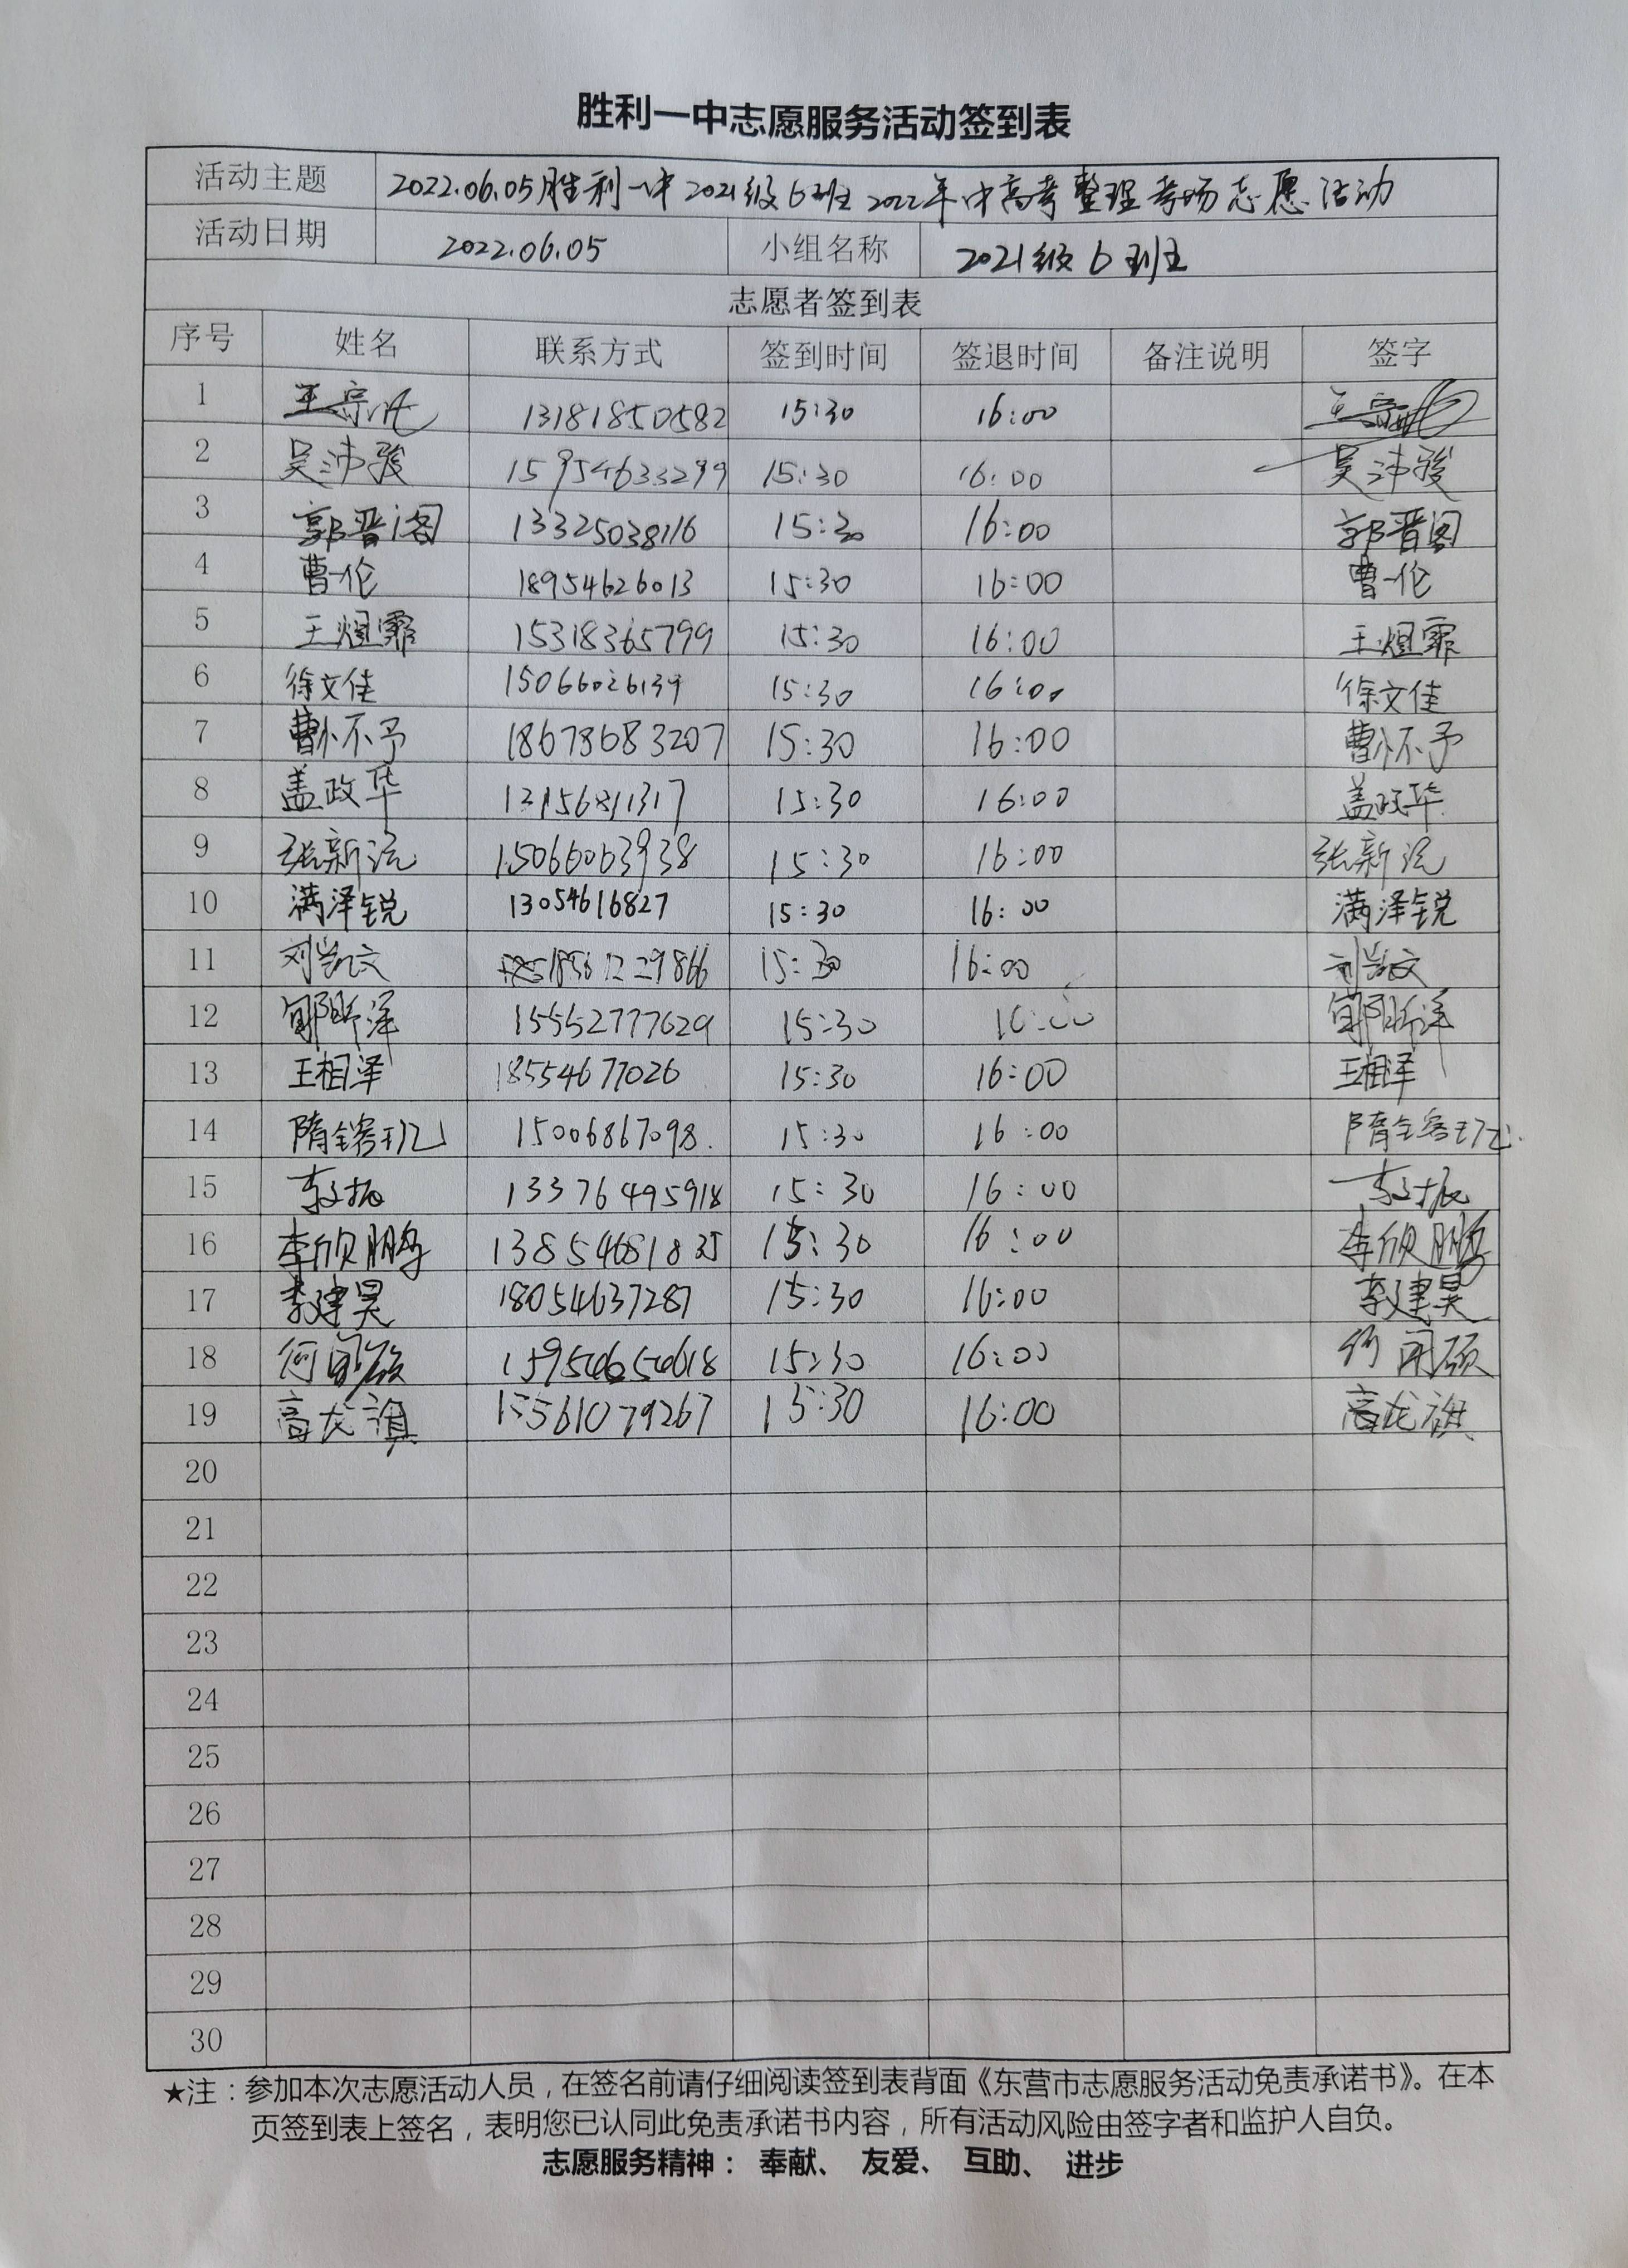 胜利一中志愿服务活动签到表
活动主题 2022.06.05胜利一中2021级6班2022年中高考整理考场志愿活动
活动日期 2022.06.05 小组名称 2021级6班
志愿者签到表
序号 姓名 联系方式 签到时间 签退时间 备注说明 签字
1 13181850582 15:30 16:00
2 吴沛骏 15954633299 15:30 16:00 吴沛骏
3 郭晋阁 13325038116 15:30 16:00 郭晋阁
4 曹一伦 18954626013 15:30 16:00 曹一伦
5 王煜霏 15318365799 15:30 16:00 王煜霏
6 徐文佳 15066026139 15:30 16:00 徐文佳
7 曹怀予 18678683207 15:30 16:00 曹怀予
8 盖政华 15:30 16:00 盖政华
9 张新沅 15066063938 15:30 16:00 张新沅
10 满泽锐 13054616827 15:30 16:00 满泽锐
11 刘凯文 15:30 16:00 刘凯文
12 15552777629 15:30 16:00
13 王相泽 18554677026 15:30 16:00 王相泽
14 15006867098. 15:30 16:00
15 李振 13376495918 15:30 16:00 李振
16 李欣鹏 13854681835 15:30 16:00 李欣鹏
17 李建昊 18054637287 15:30 16:00 李建昊
18 何闻硕 15954654618 15:30 16:00 何闻硕
19 高龙旗 15561079267 15:30 16:00 高龙旗
20
21
22
23
24
25
26
27
28
29
30
★注：参加本次志愿活动人员，在签名前请仔细阅读签到表背面《东营市志愿服务活动免责承诺书》。在本
页签到表上签名，表明您已认同此免责承诺书内容，所有活动风险由签字者和监护人自负。
志愿服务精神： 奉献、 友爱、 互助、 进步